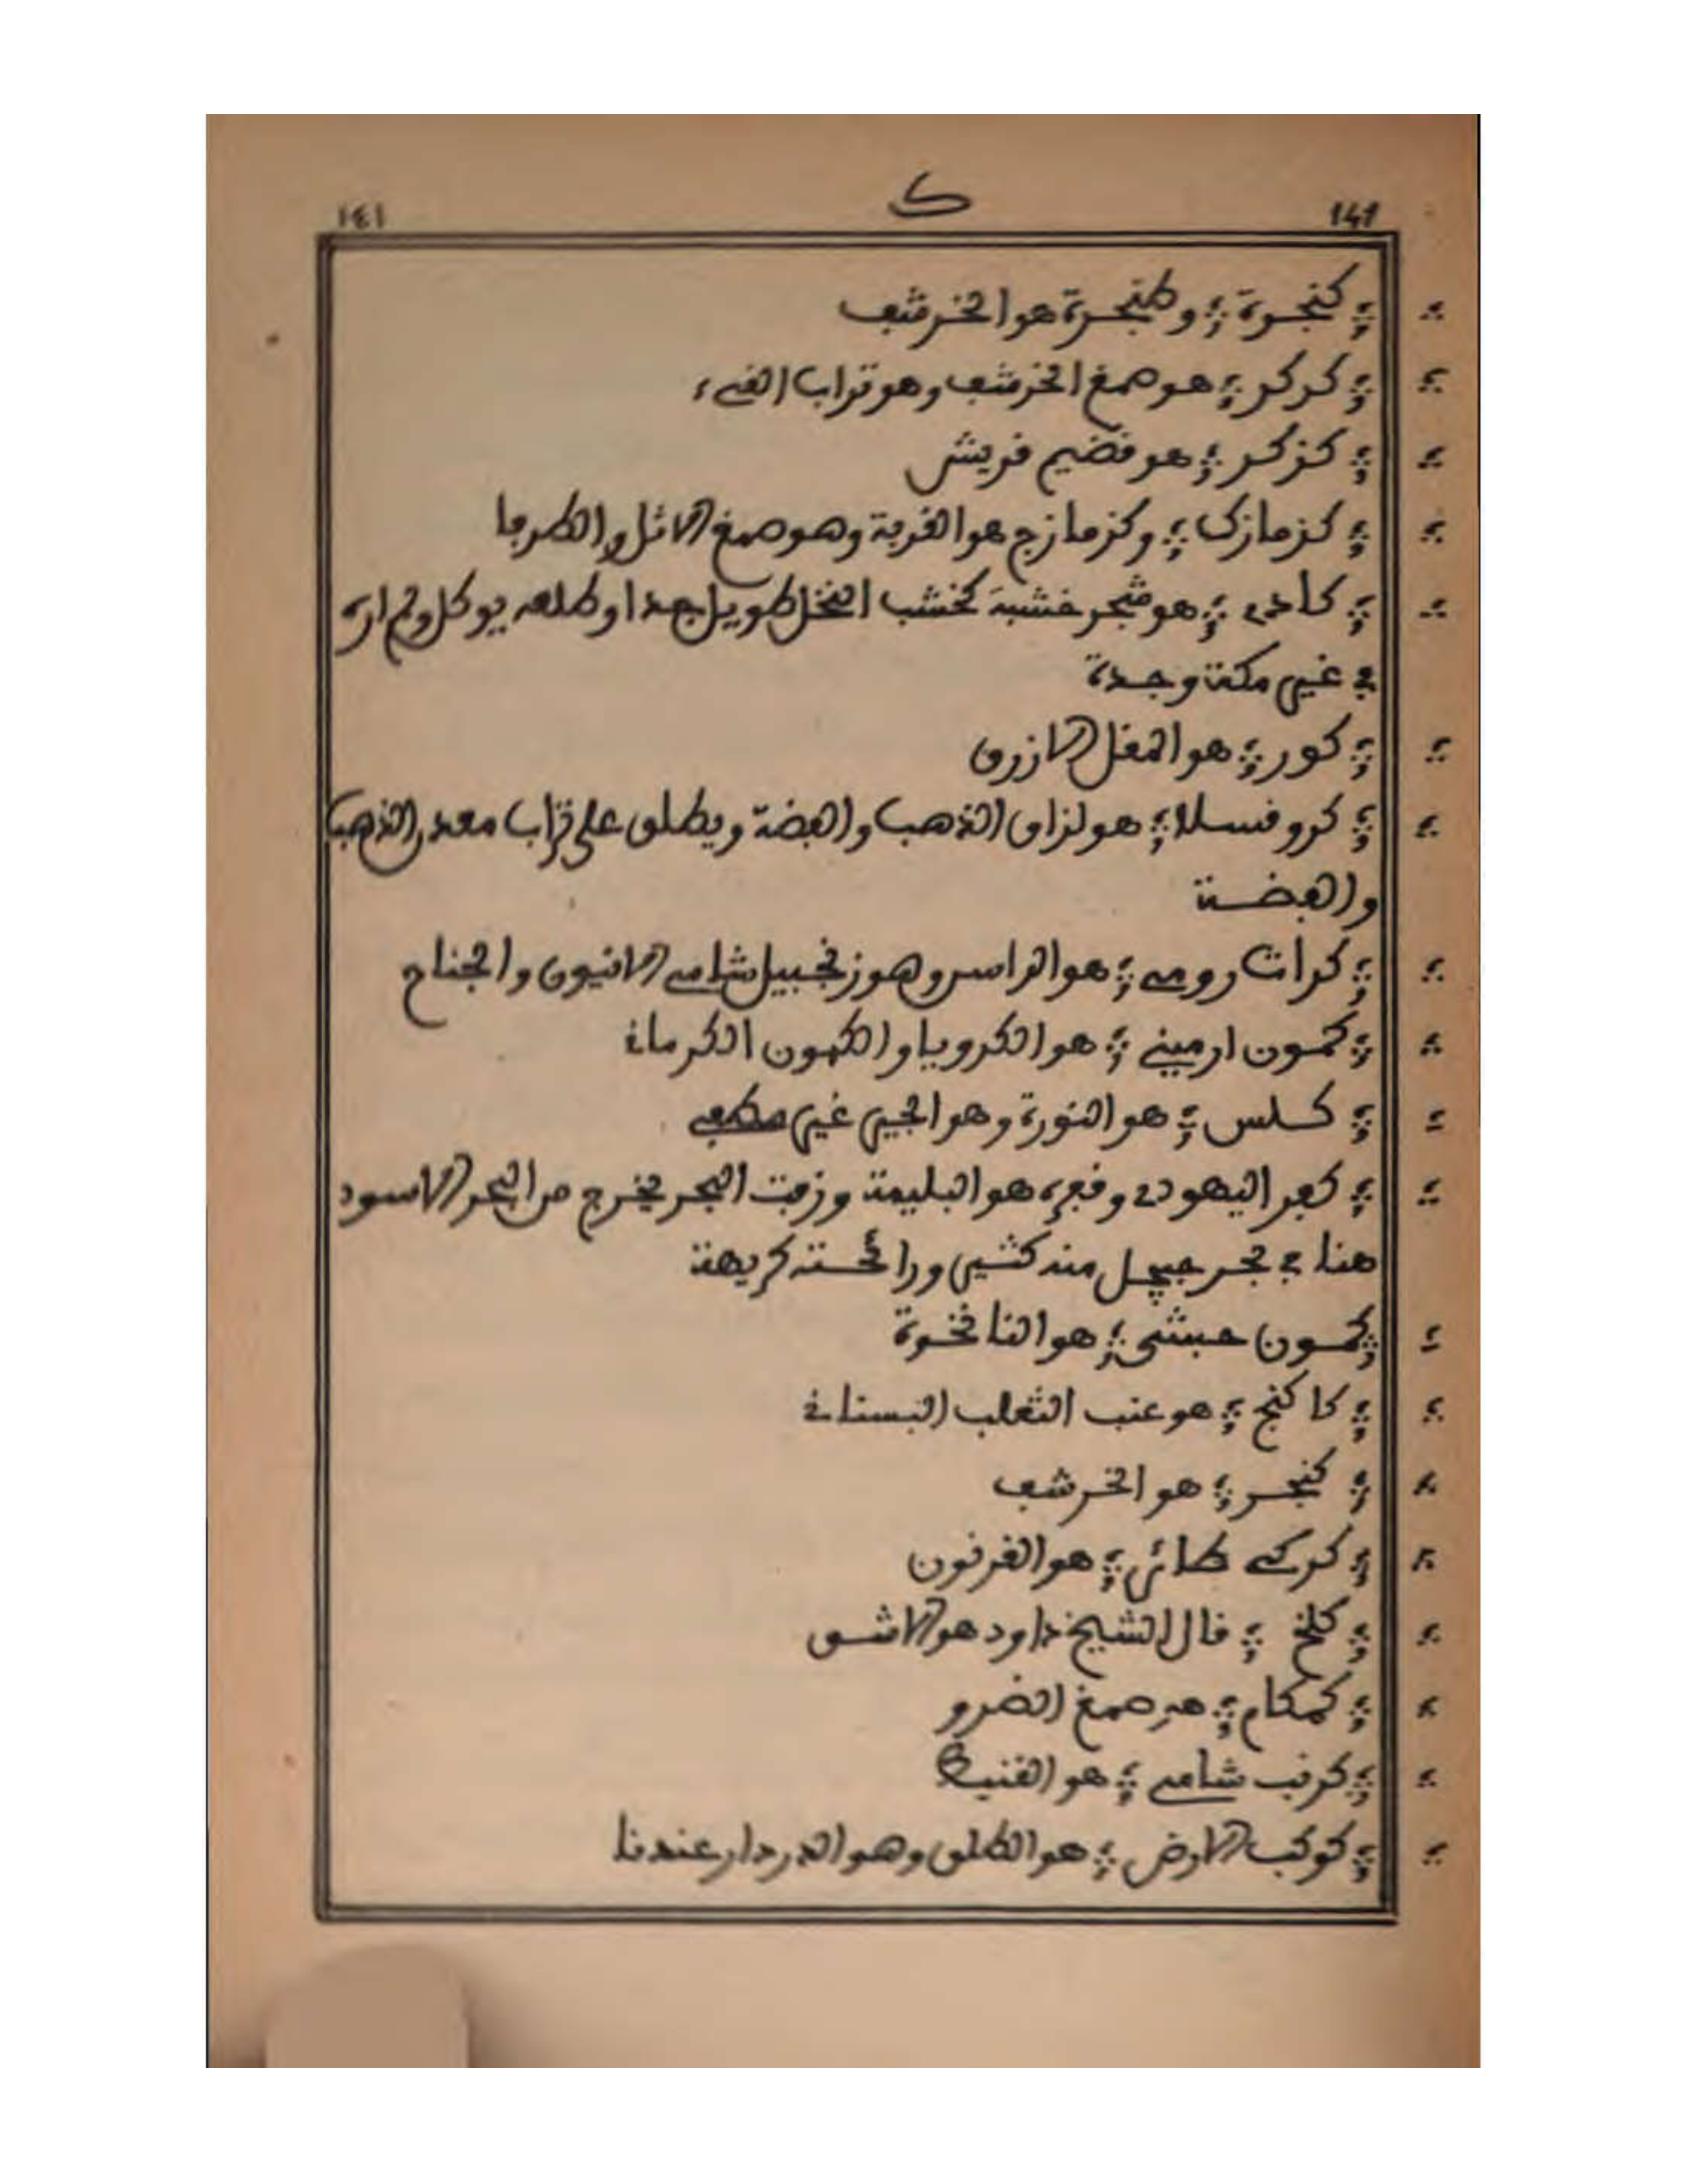 141 ك ١٤١
كنجرة ؛ وطنجرة هو الخرشف
كركر ؛ هو صمغ الخرشف وهو تراب القيء
كزكر ؛ هو قضيم قريش
كزمازك ؛ وكزمازج هو القربة وهو صمغ الاثل والطرفا
كادي ؛ هو شجر خشبه كخشب النخل طويل جدا وطلعه يوكل ولم اره
في غير مكة وجدة
كور ؛ هو المقل الازرق
كروفسلا ؛ هو لزاق الذهب والفضة ويطلق على تراب معدن الذهب
والفضة
كراث رومي ؛ هو الراسن وهو زنجبيل شامي الانيون والجناح
كمون ارميني ؛ هو الكرويا والكمون الكرماني
كلس ؛ هو النورة وهو الجير غير مطفي
كفر اليهودي وقفره هو البليمة وزفت البحر يخرج من البحر الاسود
هنا في بحر منه كثير ورائحته كريهة
كمون حبشي ؛ هو النانخوة
كاكنج ؛ هو عنب الثعلب البستاني
كنجر ؛ هو الخرشف
كركي طائر ؛ هو الغرنون
كلخ ؛ قال الشيخ داود هو الاشق
كمكام ؛ هو صمغ الضرو
كرنب شامي ؛ هو القنبيط
كوكب الارض ؛ هو الطلق وهو الدردار عندنا